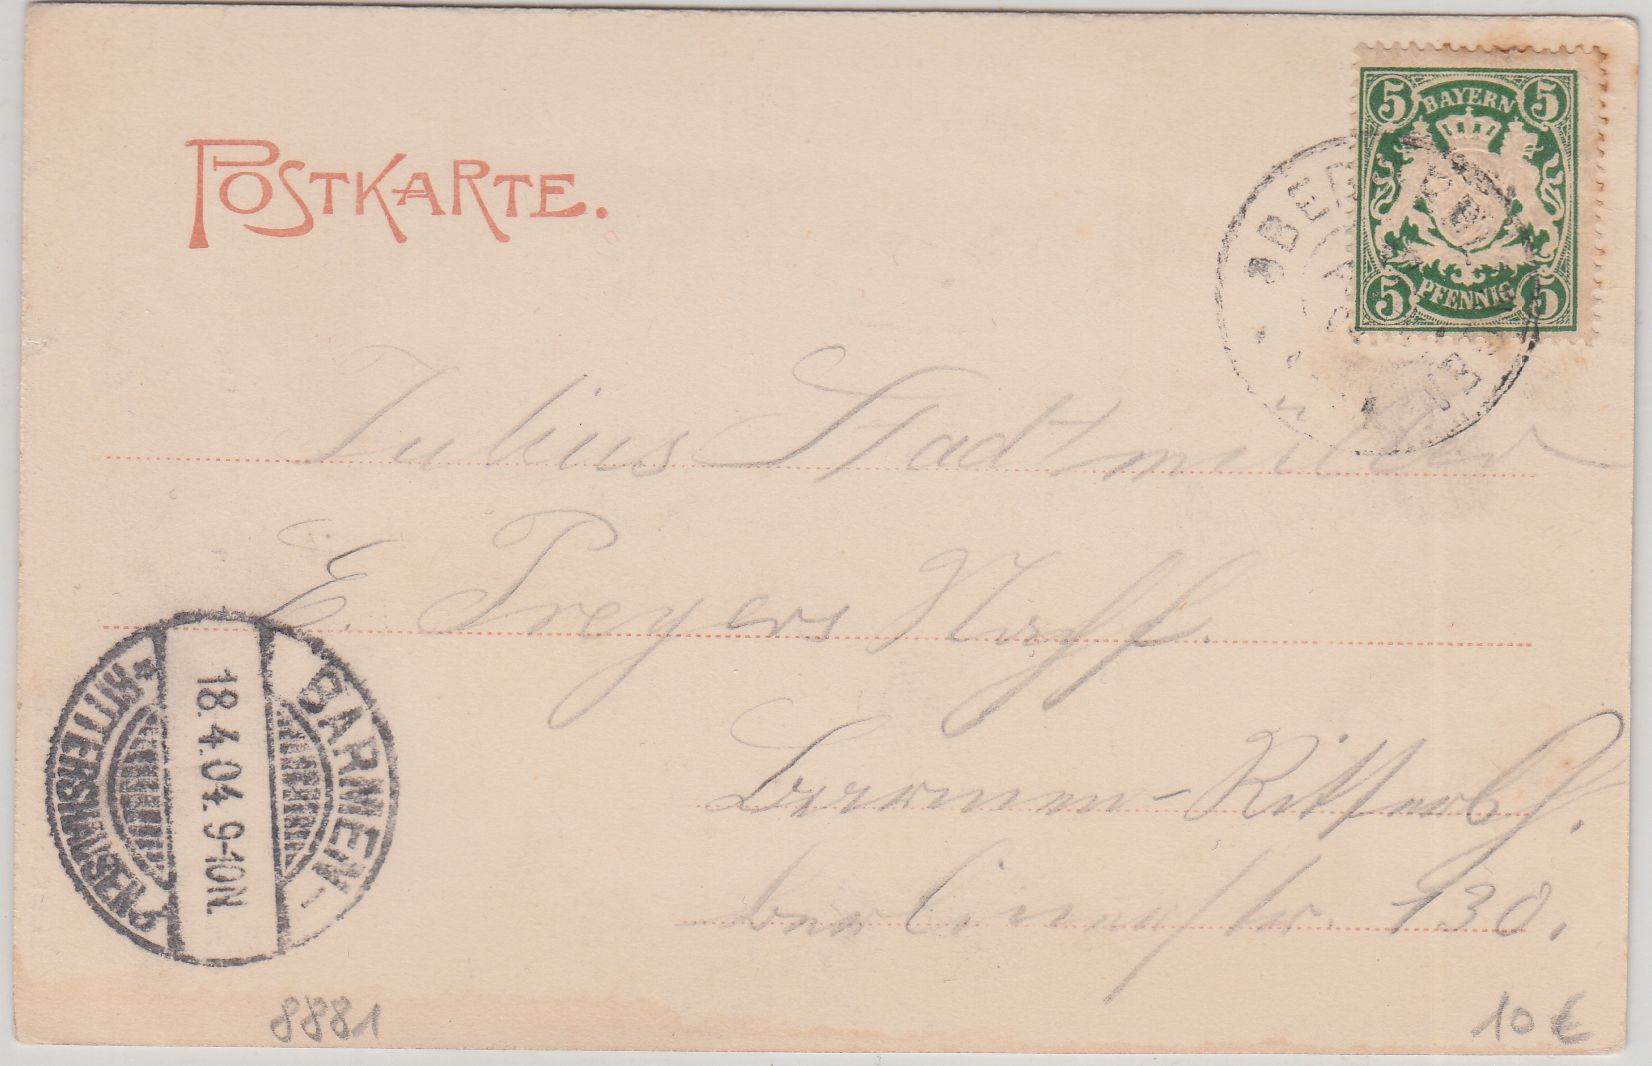 POSTKARTE.
5 BAYERN 5
5 PFENNIG 5
Julius Stadtmüller
E. Preyers Nachf.
Barmen-Ritterßh.
berlinerstr. 130.
BARMEN
* RITTERSHAUSEN
18.4.04. 9-10N.
8881
10 €